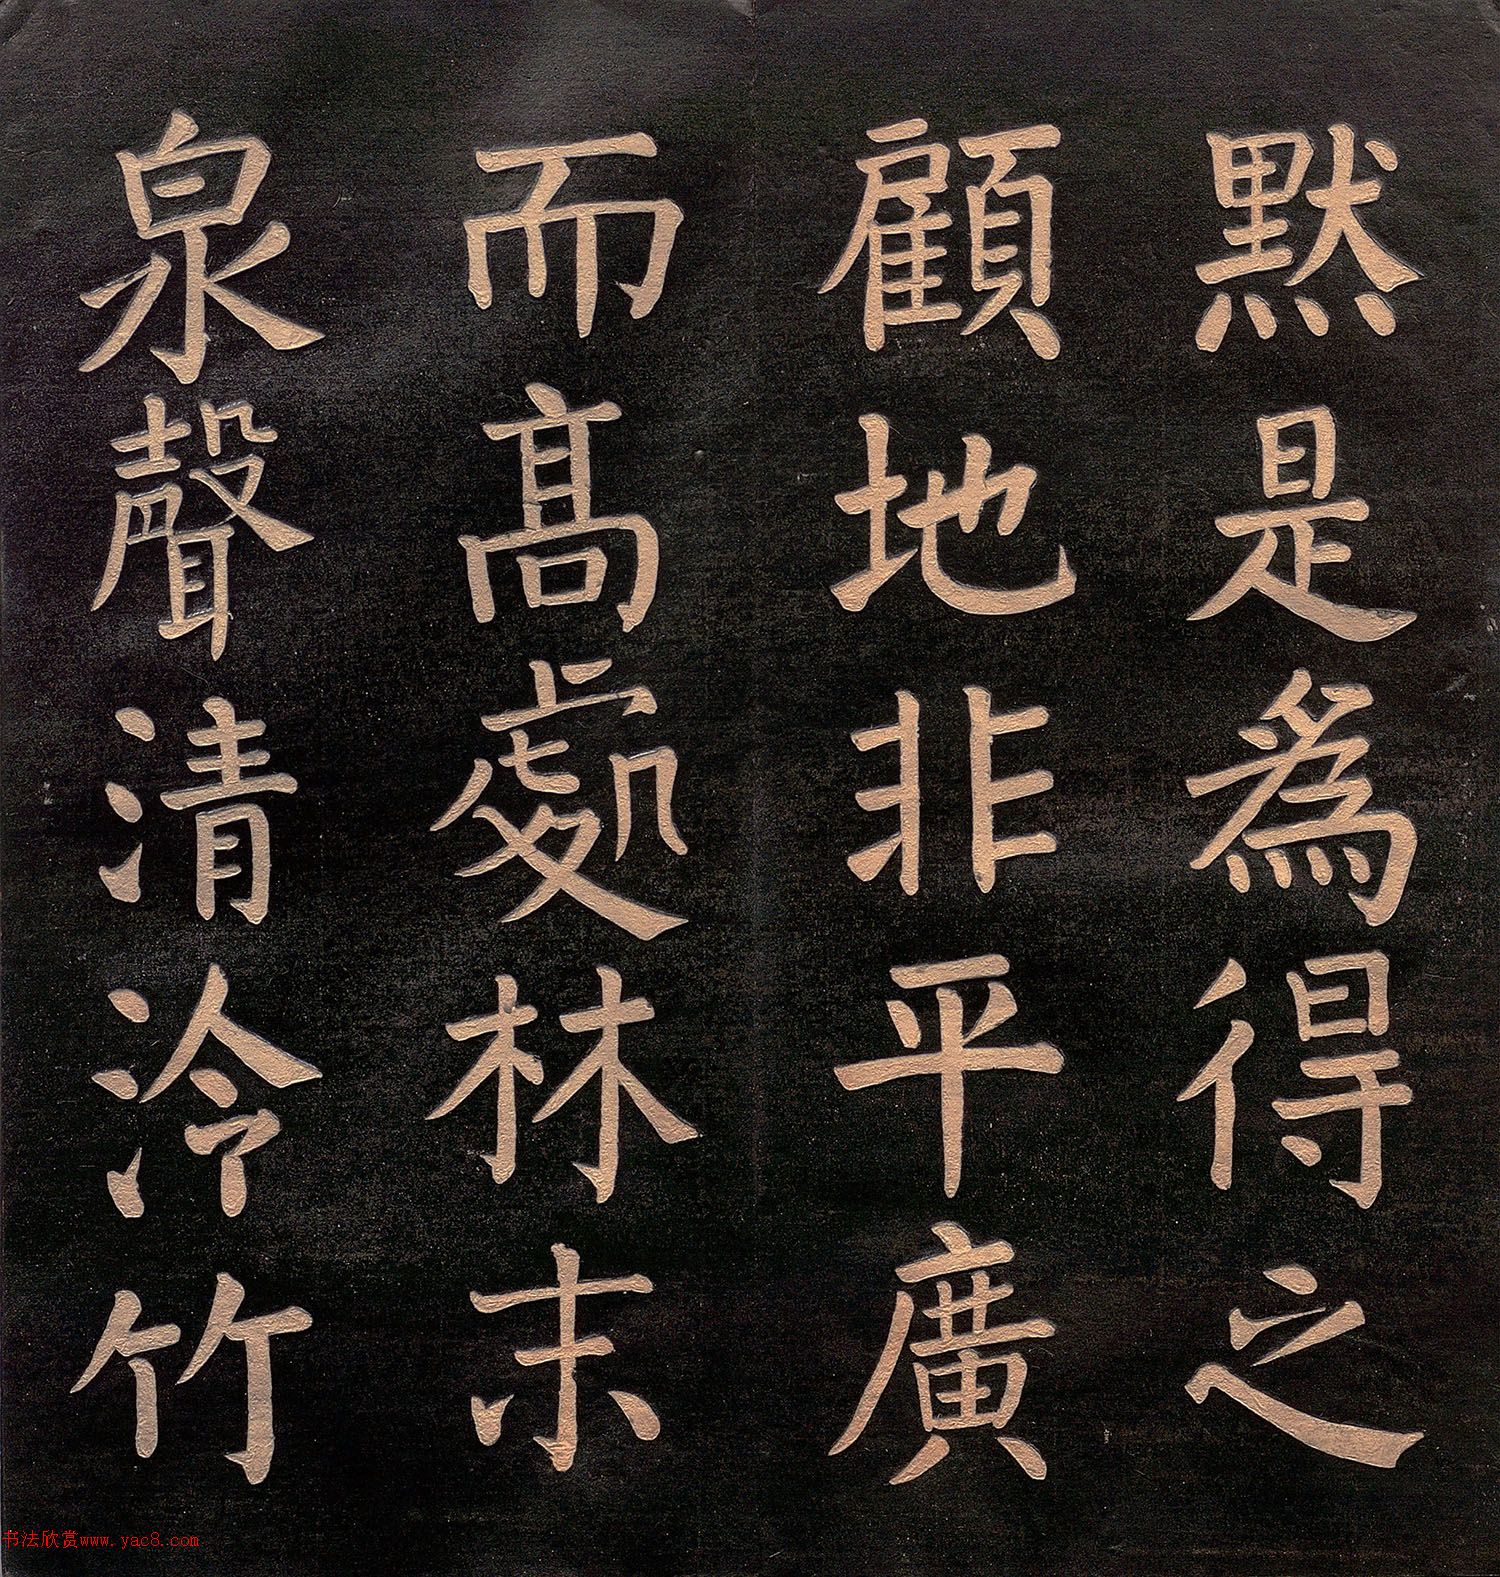 默是為得之
顧地非平廣
而高處林末
泉聲清泠竹
书法欣赏www.yac8.com